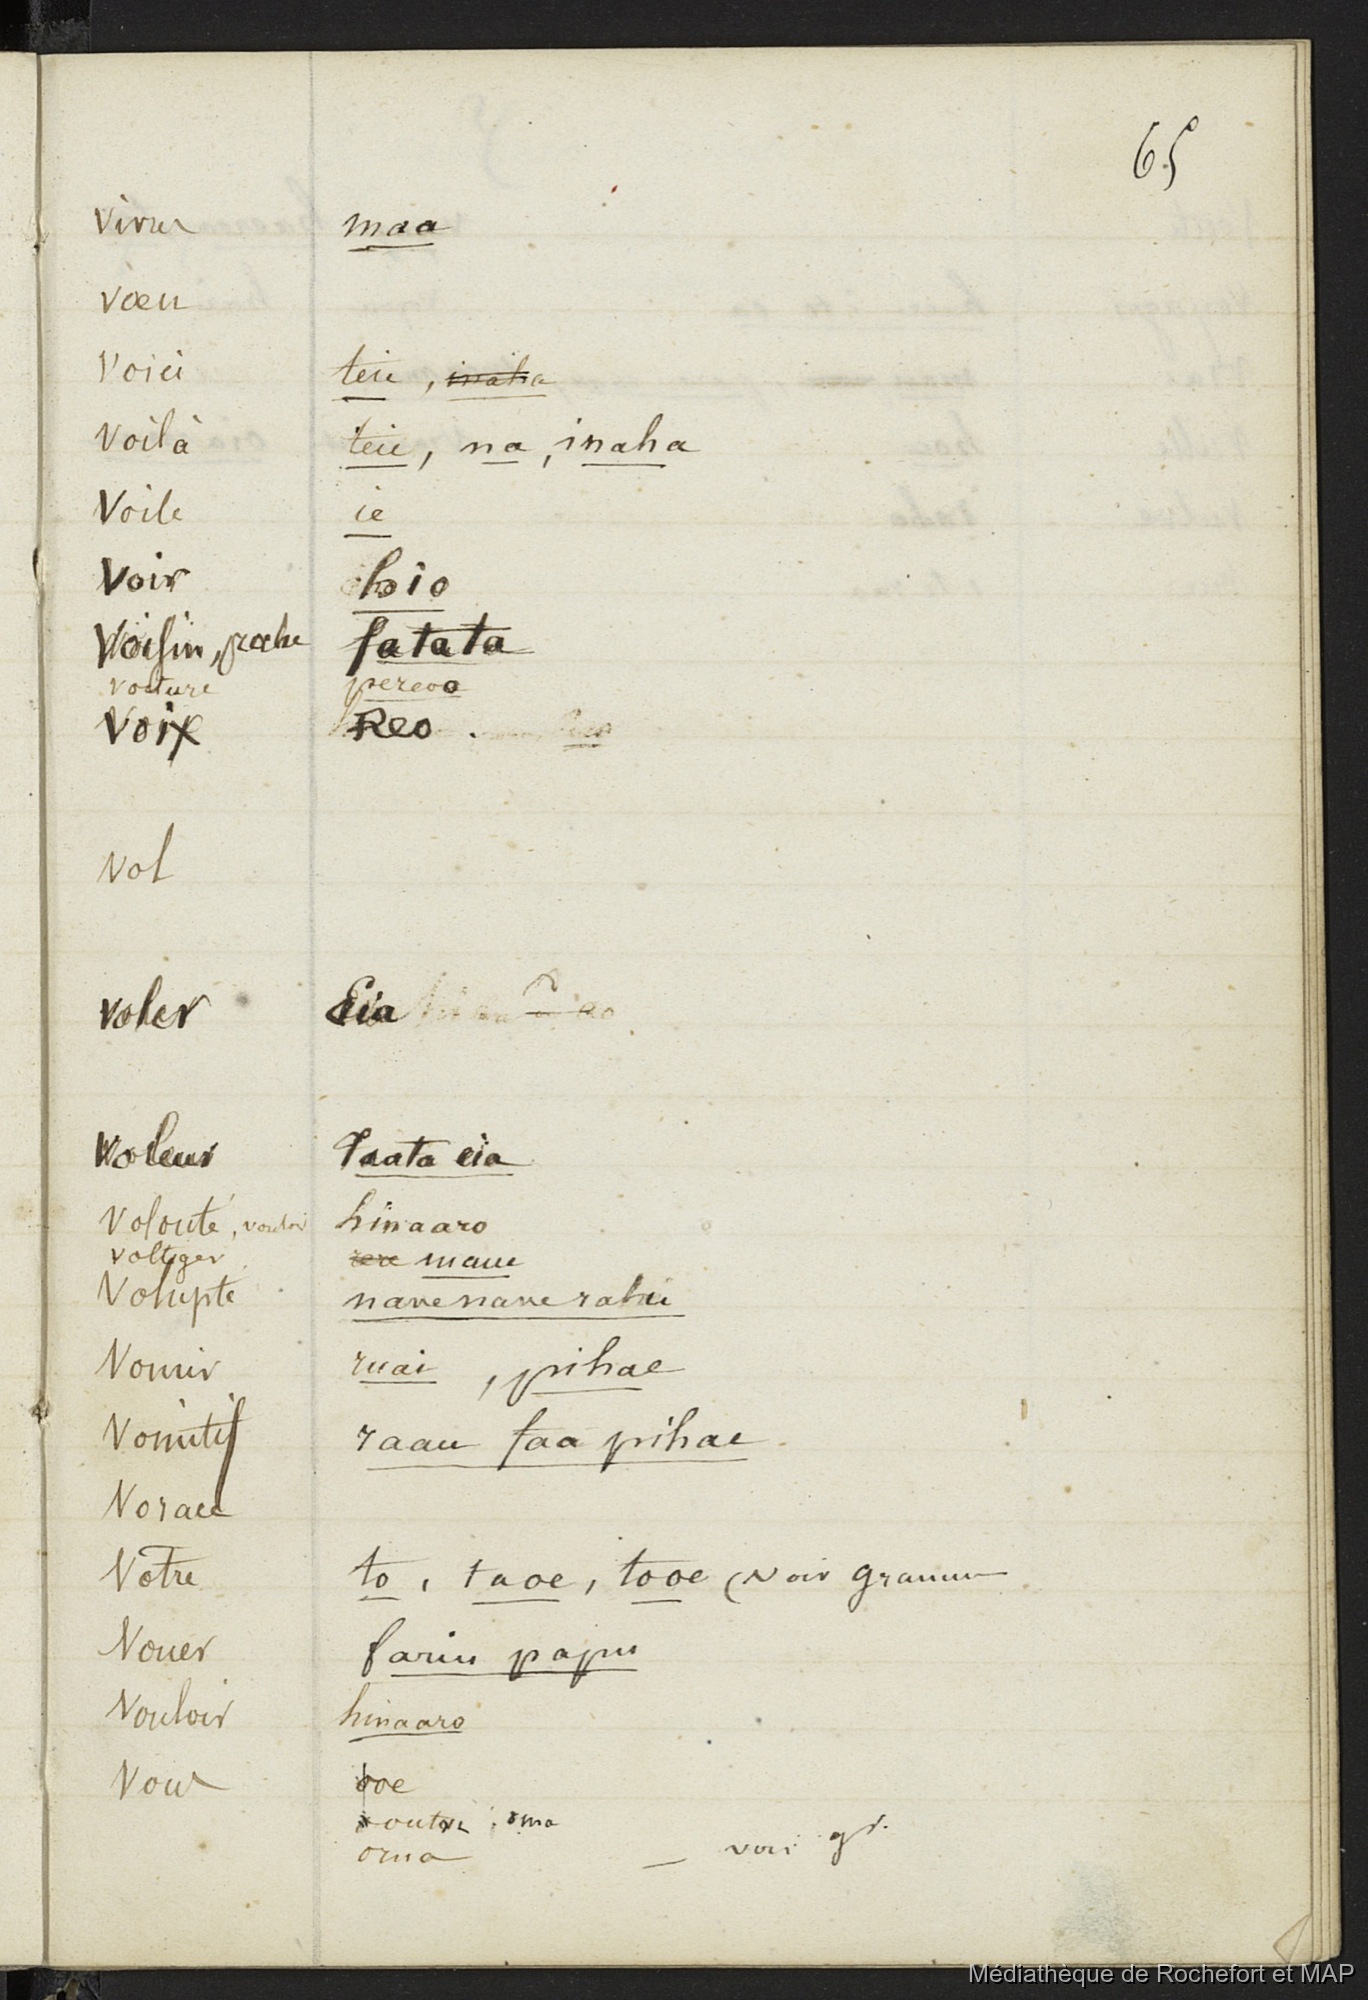 65
Virus maa
Vœu
Voici teie, inaha
Voilà teie, na, inaha
Voile ie
Voir hio
Voisin, proche fatata
voiture pereoo
Voix Reo.
Vol
Voler Eia
Voleur Taata eia
Volonté, vouloir hinaaro
voltiger rere maue
Volupté navenave rahi
Vomir ruai, pihae
Vomitif raau faa pihae
Vorace
Votre to, taoe, tooe (voir gramm
Vouer fariu papu
Vouloir hinaaro
Vous ooe
outou, oma
orua — voir gr.
Médiathèque de Rochefort et MAP